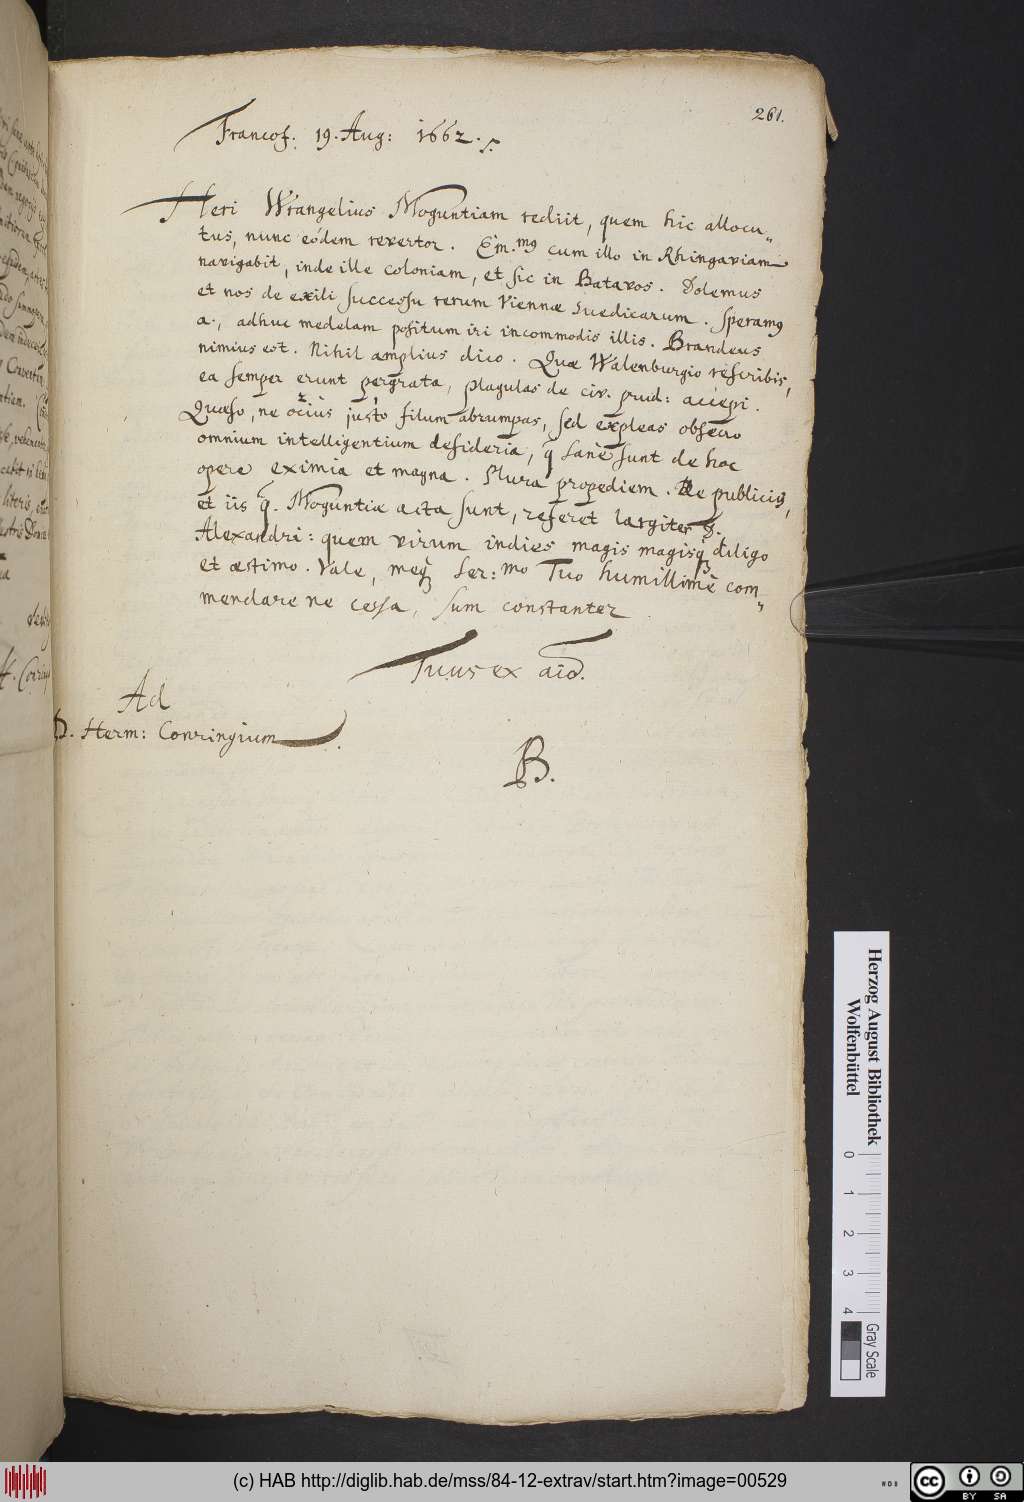 261.
Francof. 19. Aug: 1662. s.
Heri Wrangelius Moguntiam rediit, quem hic allocu„
tus, nunc eódem revertor. Em.mq cum illo in Rhingaviam
navigabit, inde ille coloniam, et sic in Batavos. Dolemus
et nos de exili successu rerum Viennæ Suedicarum. Speramq
a., adhuc medelam positum iri incommodis illis. Brandeus
nimius est. Nihil amplius dico. Quæ Walenburgio rescribis,
ea semper erunt pergrata, plagulas de civ. prud: accepi.
Quæso, ne ociùs justo filum abrumpas, sed expleas obsecro
omnium intelligentium desideria, q̃ sanè sunt de hoc
opere eximia et magna. Plura propediem. De publicis,
et iis q̃. Moguntiæ acta sunt, referet largiter
Alexandri: quem virum indies magis magisq diligo
et æstimo. Vale, meq Ser:mo Tuo humillimè com„
mendare ne cessa, sum constanter
Tuus ex aiõ.
Ad
D. Herm: Conringium
B.
literis,
H.
Herzog August Bibliothek
Wolfenbüttel
0 1 2 3 4
Gray Scale
(c) HAB http://diglib.hab.de/mss/84-12-extrav/start.htm?image=00529
cc BY SA